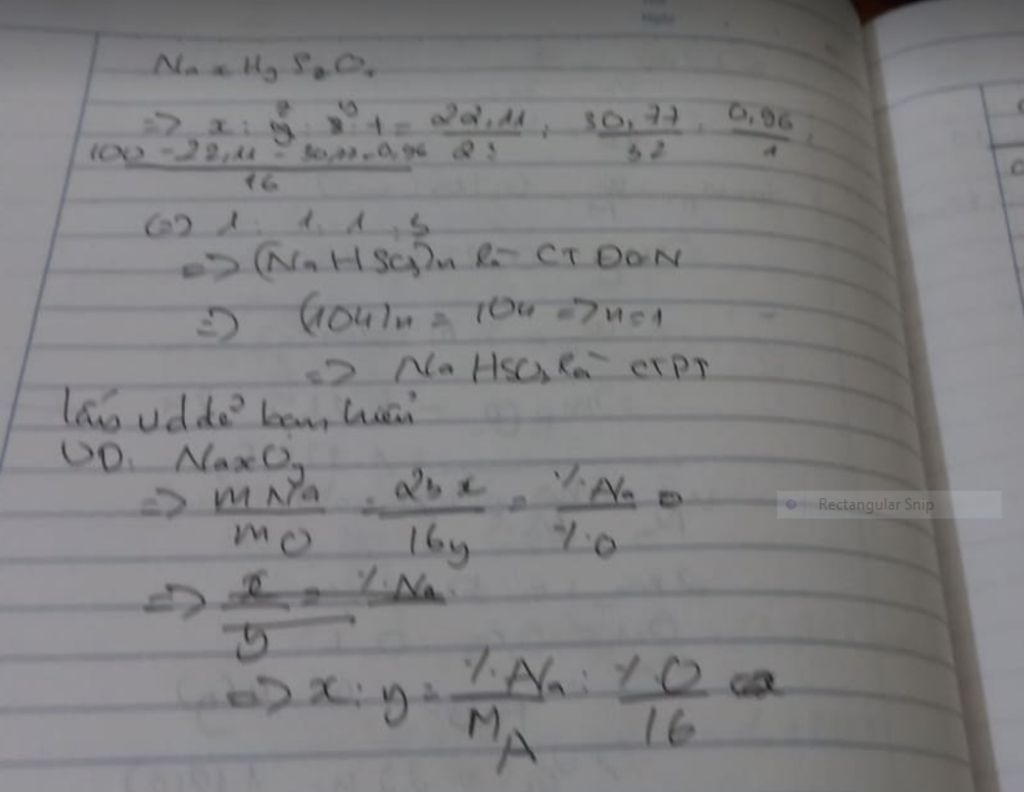 NaxHySzOt
=> x : y : z : t = 22,11/23 : 30,77/32 : 0,96/1 :
100 - 22,11 - 30,77 - 0,96 / 16
<=> 1 : 1 : 1 : 3
=> (NaHSO3)n là CT DON
=> (104)n = 104 => n = 1
=> NaHSO3 là CTPT
VD: NaxOy
=> mNa/mO = 23x/16y = %Na/%O
=> x/y = %Na
<=> x : y = %Na/MA : %O/16
Rectangular Snip